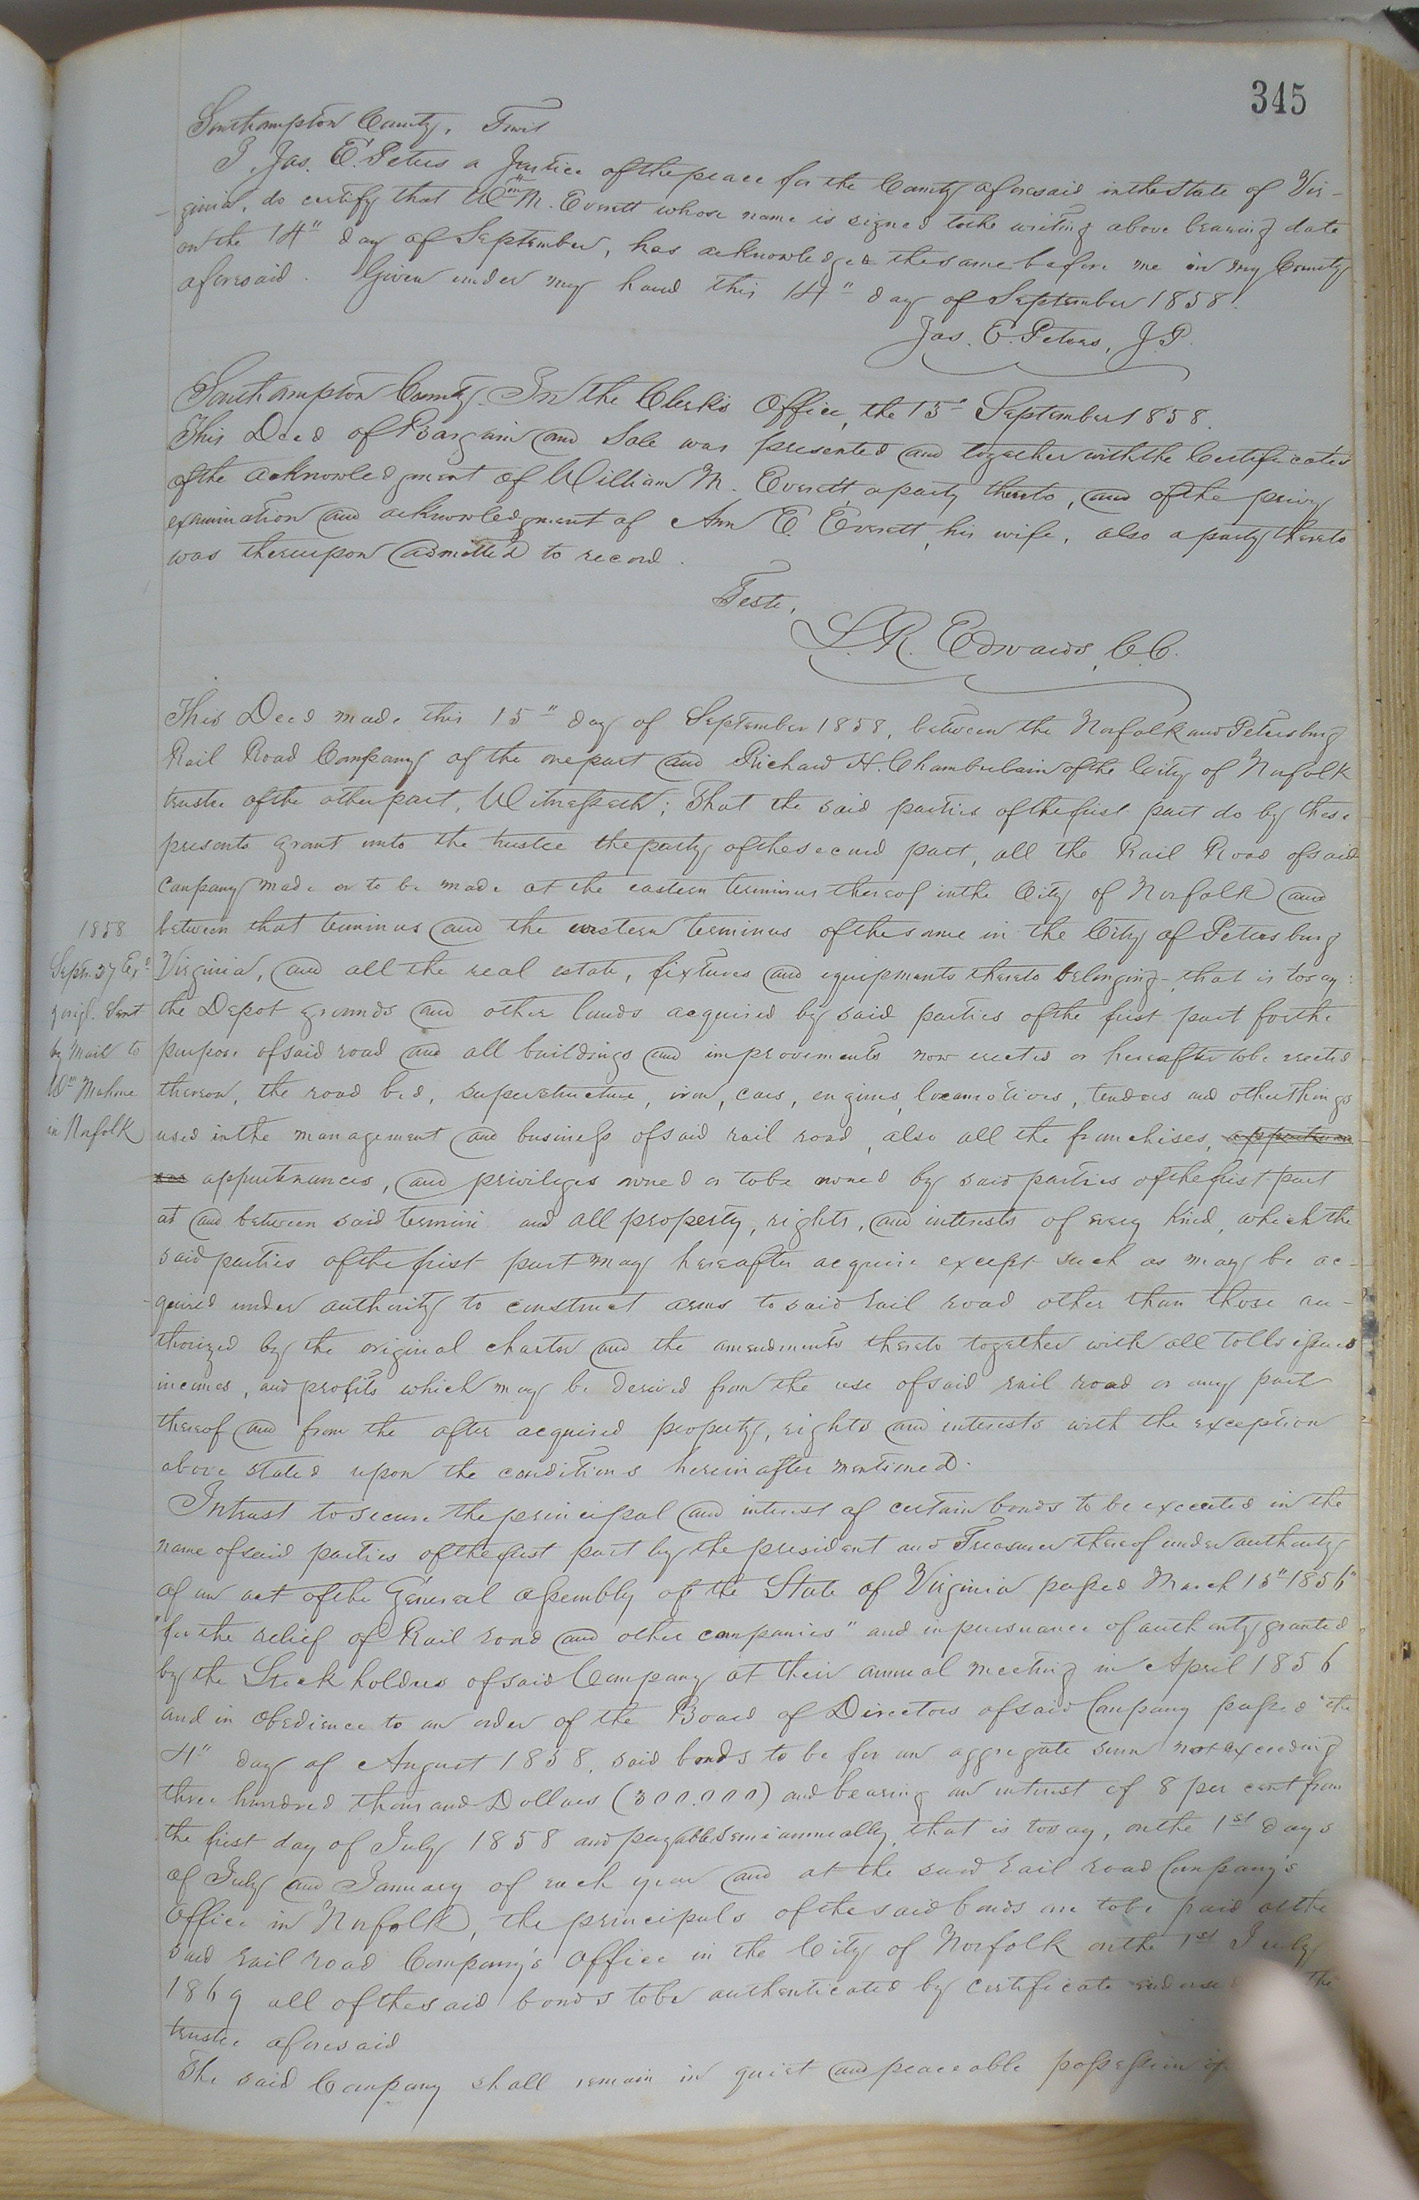 345
Southampton County, Towit
I, Jas. E. Peters a Justice of the peace for the County aforesaid in the State of Vir-
ginia, do certify that Wm M. Everett whose name is signed to the writing above bearing date
on the 14" day of September, has acknowledged the same before me in my County
aforesaid. Given under my hand this 14" day of September 1858.
Jas. E. Peters, J.P.
Southampton County. In the Clerk's Office, the 15" September 1858.
This Deed of Bargain and Sale was presented and together with the Certificates
of the acknowledgment of William M. Everett, a party thereto, and of the privy
examination and acknowledgment of Ann E. Everett, his wife, also a party thereto
was thereupon admitted to record.
Teste,
L. R. Edwards, C.C.
This Deed made this 15" day of September 1858, between the Norfolk and Petersburg
Rail Road Company of the one part and Richard H. Chamberlain of the City of Norfolk
trustee of the other part, Witnesseth; That the said parties of the first part do by these
presents grant unto the trustee the party of the second part, all the Rail Road of said
company made or to be made at the eastern terminus thereof in the City of Norfolk and
between that terminus and the western terminus of the same in the City of Petersburg
Virginia, and all the real estate, fixtures and equipments thereto belonging, that is to say:
the Depot grounds and other lands acquired by said parties of the first part for the
purpose of said road and all buildings and improvements now erected or hereafter to be erected
thereon, the road bed, superstructure, iron, cars, engines, locomotives, tenders and other things
used in the management and business of said rail road, also all the franchises,
appurtenances, and privileges owned or to be owned by said parties of the first part
at and between said termini and all property, rights, and interests of every kind, which the
said parties of the first part may hereafter acquire except such as may be ac-
quired under authority to construct arms to said rail road other than those au-
thorized by the original charter and the amendments thereto together with all tolls issues
incomes, and profits which may be derived from the use of said rail road or any part
thereof and from the after acquired property, rights and interests with the exception
above stated upon the conditions hereinafter mentioned.
In trust to secure the principal and interest of certain bonds to be executed in the
name of said parties of the first part by the president and Treasurer thereof under authority
of an act of the General assembly of the State of Virginia passed March 15" 1856"
"for the relief of Rail road and other companies" and in pursuance of authority granted
by the Stockholders of said Company at their annual meeting in April 1856
and in obedience to an order of the Board of Directors of said Company passed the
4" day of August 1858, said bonds to be for an aggregate sum not exceeding
three hundred thousand Dollars (300.000) and bearing an interest of 8 per cent from
the first day of July 1858 and payable semiannually, that is to say, on the 1st days
of July and January of each year and at the said rail road Company's
Office in Norfolk, the principals of the said bonds are to be paid at the
said rail road Company's Office in the City of Norfolk on the 1st July
1869 all of the said bonds to be authenticated by certificate the
trustee aforesaid
The said Company shall remain in quiet and peaceable possession
1858
Septr. 27 Exd
& origl. sent
by Mail to
Wm Mahone
in Norfolk